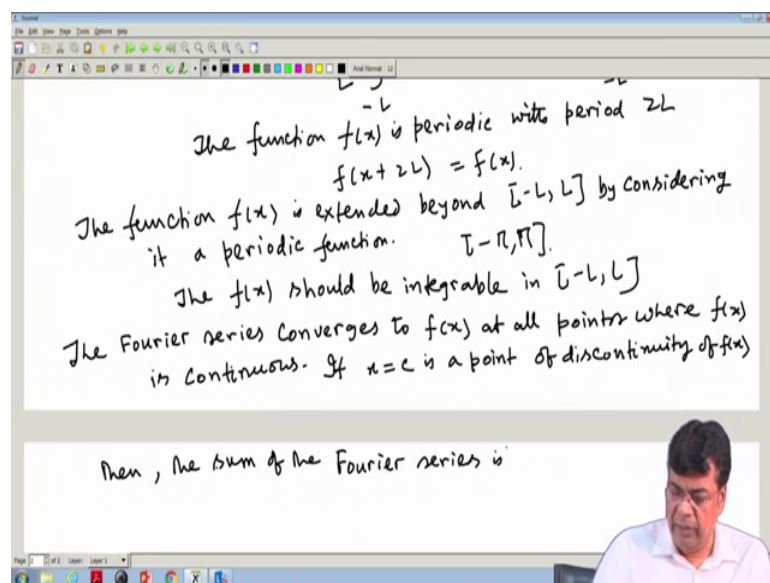 Journal
File Edit View Page Tools Options Help
Arial Normal 12
-L -L
The function f(x) is periodic with period 2L
f(x+2L) = f(x).
The function f(x) is extended beyond [-L, L] by considering
it a periodic function. [-π, π].
The f(x) should be integrable in [-L, L]
The Fourier series converges to f(x) at all points where f(x)
is continuous. If x=c is a point of discontinuity of f(x)
Then, the sum of the Fourier series is
Page 2 of 2 Layer: Layer 1